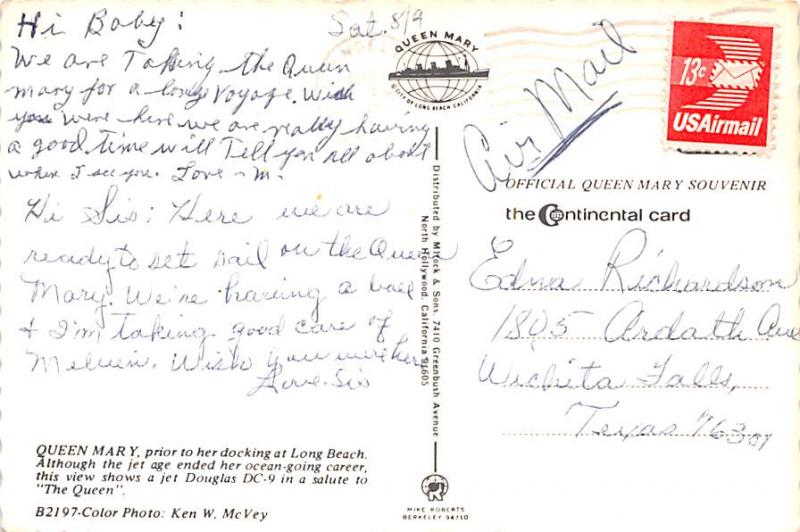 Hi Baby: Sat. 8/9
We are Taking the Queen
mary for a long Voyage. Wish
you were here we are really having
a good time will Tell you all about
when I see you. Love - m.
Hi Sis: Here we are
ready to set sail on the Queen
Mary. We're having a ball
& I'm taking good care of
Melvin. Wish you were here
Love. Sis
QUEEN MARY, prior to her docking at Long Beach.
Although the jet age ended her ocean-going career,
this view shows a jet Douglas DC-9 in a salute to
"The Queen".
B2197-Color Photo: Ken W. McVey
QUEEN MARY
© CITY OF LONG BEACH, CALIFORNIA
Distributed by Mitock & Sons, 7410 Greenbush Avenue
North Hollywood, California 91605
MIKE ROBERTS
BERKELEY 94710
Air Mail
13c
USAirmail
OFFICIAL QUEEN MARY SOUVENIR
the Continental card
Edna Richardson
1805 Ardath Ave
Wichita Falls,
Texas 76301